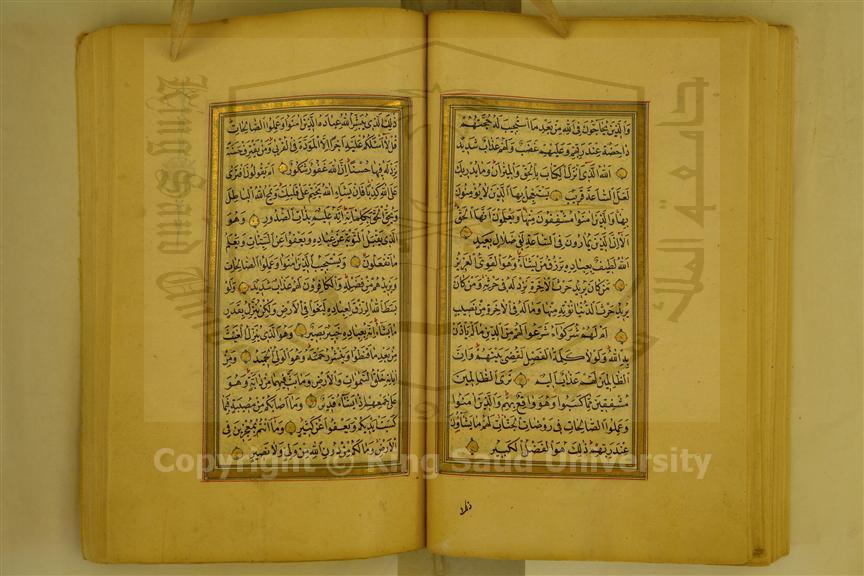 والذين يحاجون في الله من بعد ما استجيب له حجتهم
داحضة عند ربهم وعليهم غضب ولهم عذاب شديد
الله الذي انزل الكتاب بالحق والميزان وما يدريك
لعل الساعة قريب يستعجل بها الذين لا يؤمنون
بها والذين امنوا مشفقون منها ويعلمون انها الحق
الا ان الذين يمارون في الساعة لفي ضلال بعيد
الله لطيف بعباده يرزق من يشاء وهو القوي العزيز
من كان يريد حرث الاخرة نزد له في حرثه ومن كان
يريد حرث الدنيا نؤته منها وما له في الاخرة من نصيب
ام لهم شركوا شرعوا لهم من الدين ما لم ياذن
به الله ولولا كلمة الفصل لقضي بينهم وان
الظالمين لهم عذاب اليم ترى الظالمين
مشفقين مما كسبوا وهو واقع بهم والذين امنوا
وعملوا الصالحات في روضات الجنات لهم ما يشاؤن
عند ربهم ذلك هو الفضل الكبير
ذلك
ذلك الذي يبشر الله عباده الذين امنوا وعملوا الصالحات
قل لا اسئلكم عليه اجرا الا المودة في القربى ومن يقترف حسنة
نزد له فيها حسنا ان الله غفور شكور ام يقولون افترى
على الله كذبا فان يشاء الله يختم على قلبك ويمح الله الباطل
ويحق الحق بكلماته انه عليم بذات الصدور وهو
الذي يقبل التوبة عن عباده ويعفوا عن السيئات ويعلم
ما تفعلون ويستجيب الذين امنوا وعملوا الصالحات
ويزيدهم من فضله والكافرون لهم عذاب شديد ولو
بسط الله الرزق لعباده لبغوا في الارض ولكن ينزل بقدر
ما يشاء انه بعباده خبير بصير وهو الذي ينزل الغيث
من بعد ما قنطوا وينشر رحمته وهو الولي الحميد ومن
اياته خلق السموات والارض وما بث فيهما من دابة وهو
على جمعهم اذا يشاء قدير وما اصابكم من مصيبة فبما
كسبت ايديكم ويعفوا عن كثير وما انتم بمعجزين في
الارض وما لكم من دون الله من ولي ولا نصير
King Saud University
جامعة الملك سعود
Copyright © King Saud University